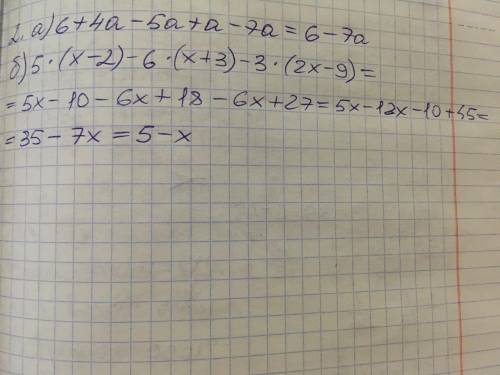 2. а) 6+4a-5a+a-7a=6-7a
б) 5·(x-2)-6·(x+3)-3·(2x-9)=
=5x-10-6x+18-6x+27=5x-12x-10+45=
=35-7x=5-x